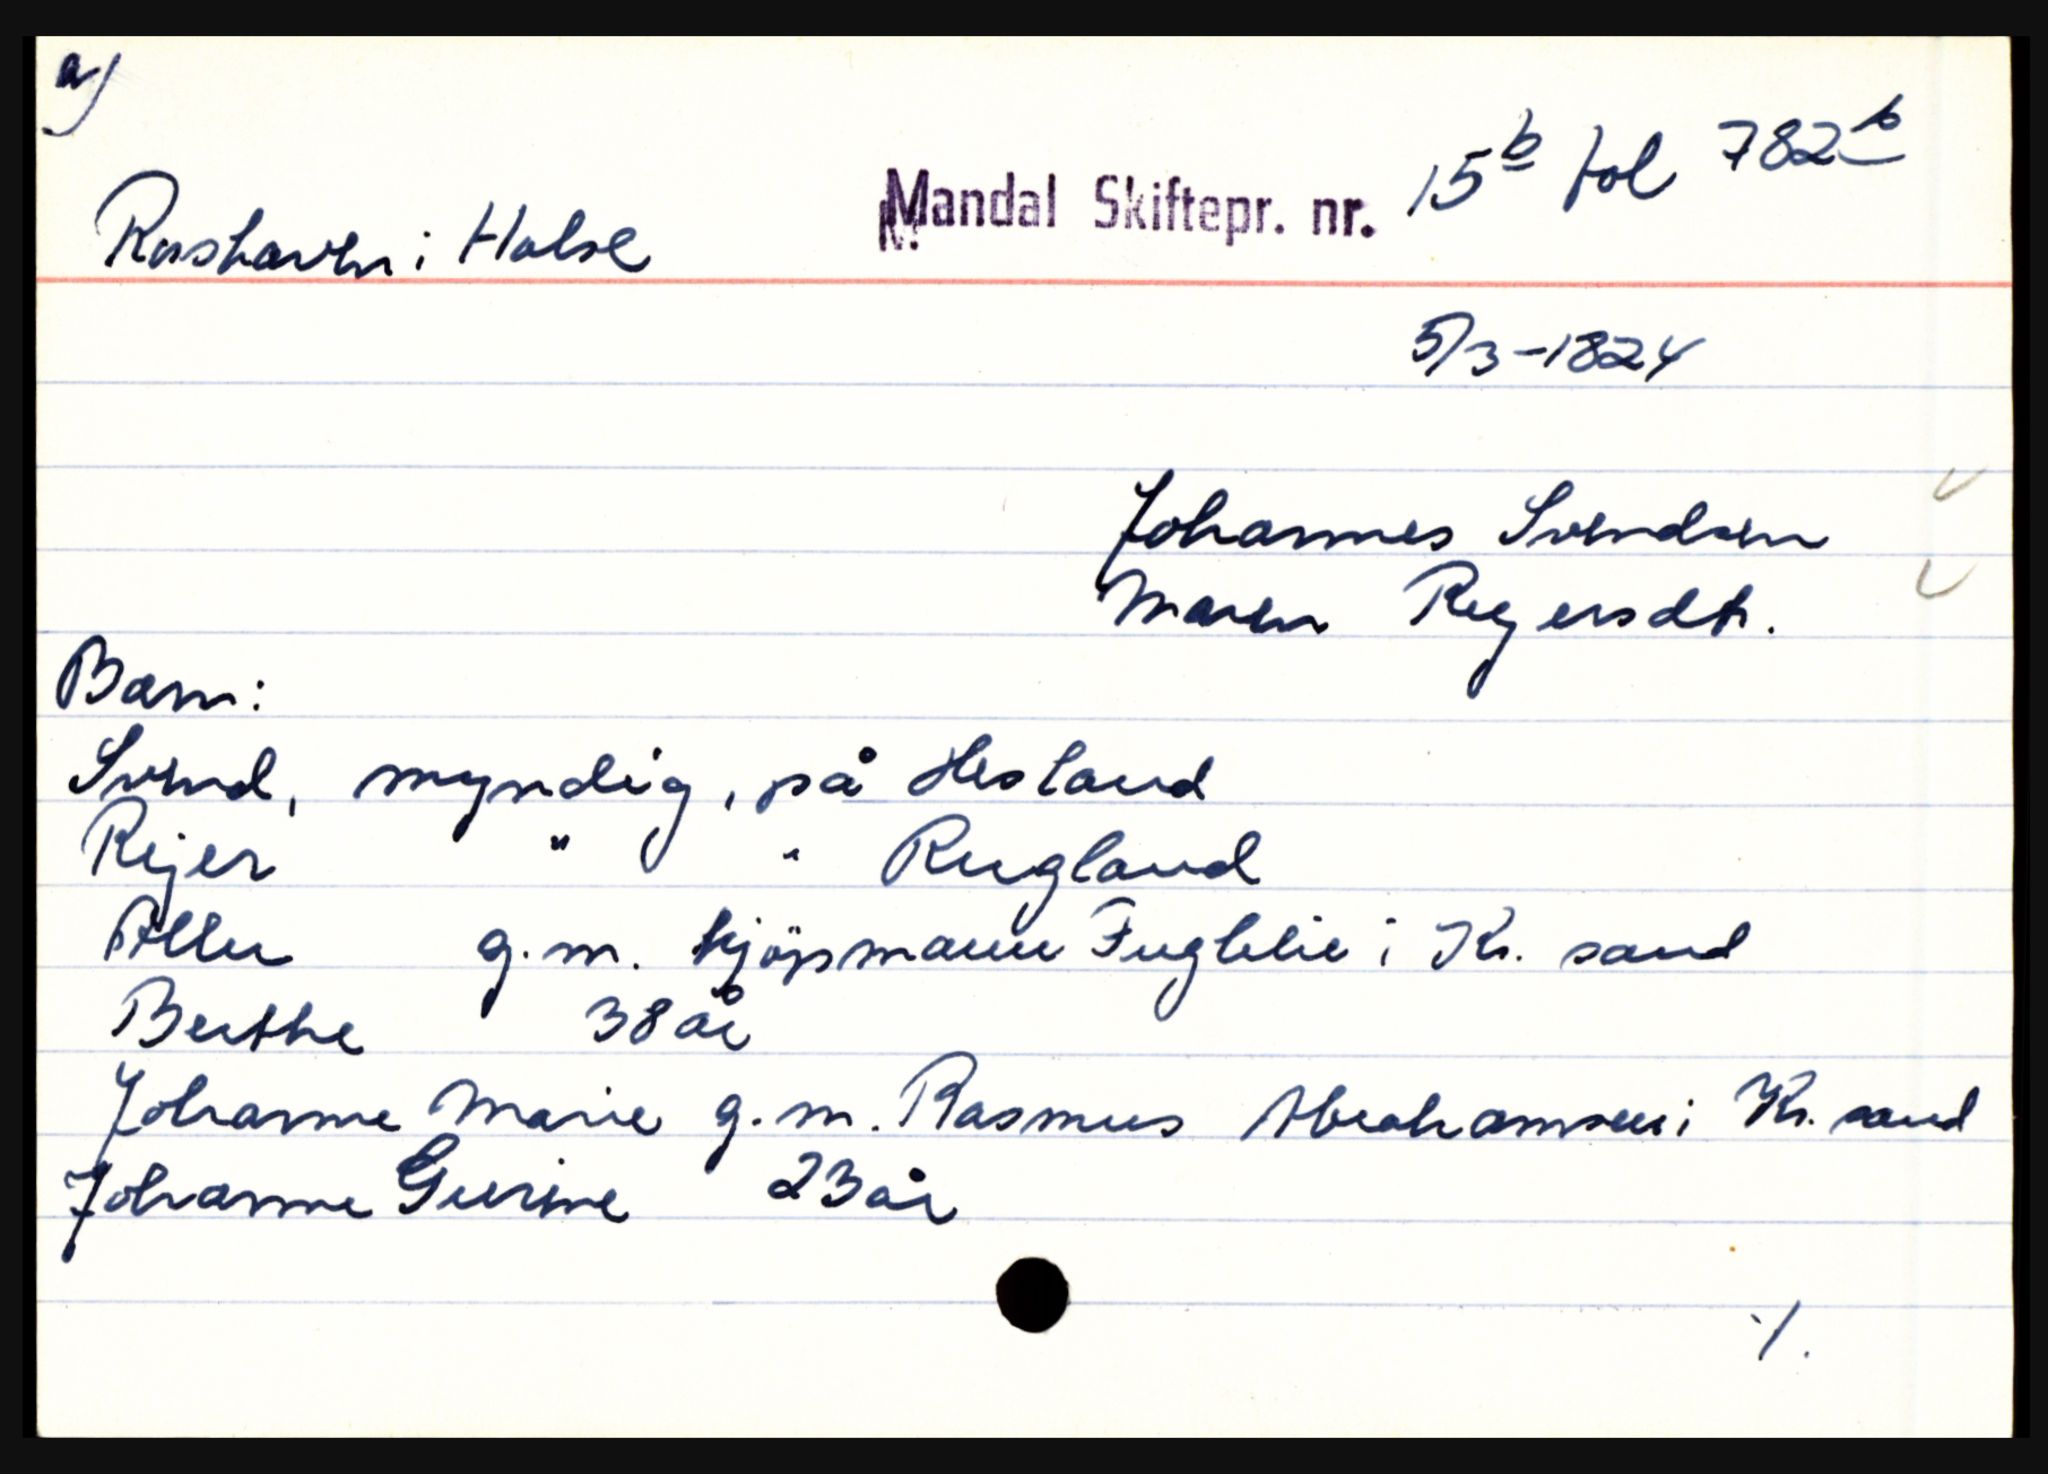 a)
Mandal Skiftepr. nr. 15b fol 782b
Roshaven i Halse
5/3-1824
Johannes Svendsen
Maren Reyersdtr.
Barn:
Svend, myndig, på Hesland
Rejer " " Rugland
Aller g.m. kjøpmann Fuglelie i Kr. sand
Berthe 38 år
Johanne Marie g.m. Rasmus Abrahamsen i Kr. sand
Johanne Gurine 23 år
./.